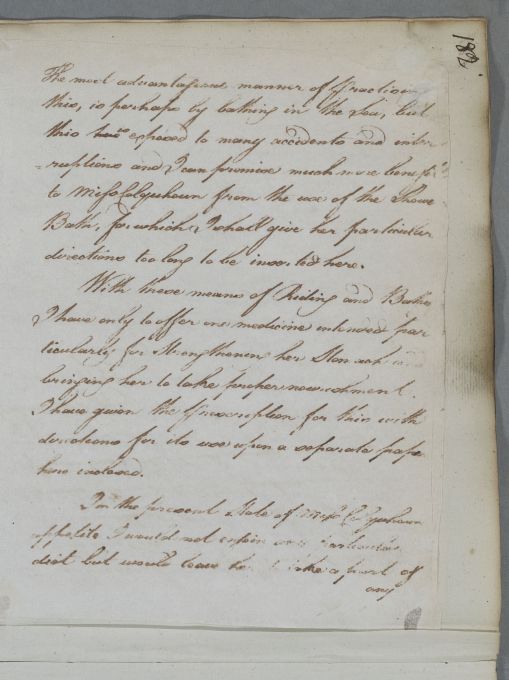 182
The most advantageous manner of Practicing
this, is perhaps by bathing in the Sea, but
this is exposed to many accidents and inter
=ruptions and I can promise much more benefit
to Miss Colquhoun from the use of the Shower
Bath, for which I shall give her particular
directions too long to be inserted here.
With these means of Riding and Bathing
I have only to offer one medicine intended par
ticularly for Strengthening her Stomach and
bringing her to take proper nourishment.
I have given the Prescription for this with
directions for its use upon a separate paper
here inclosed.
In the present State of Miss Colquhouns
appetite I would not enjoin any particular
diet but would leave her to take a part of
any